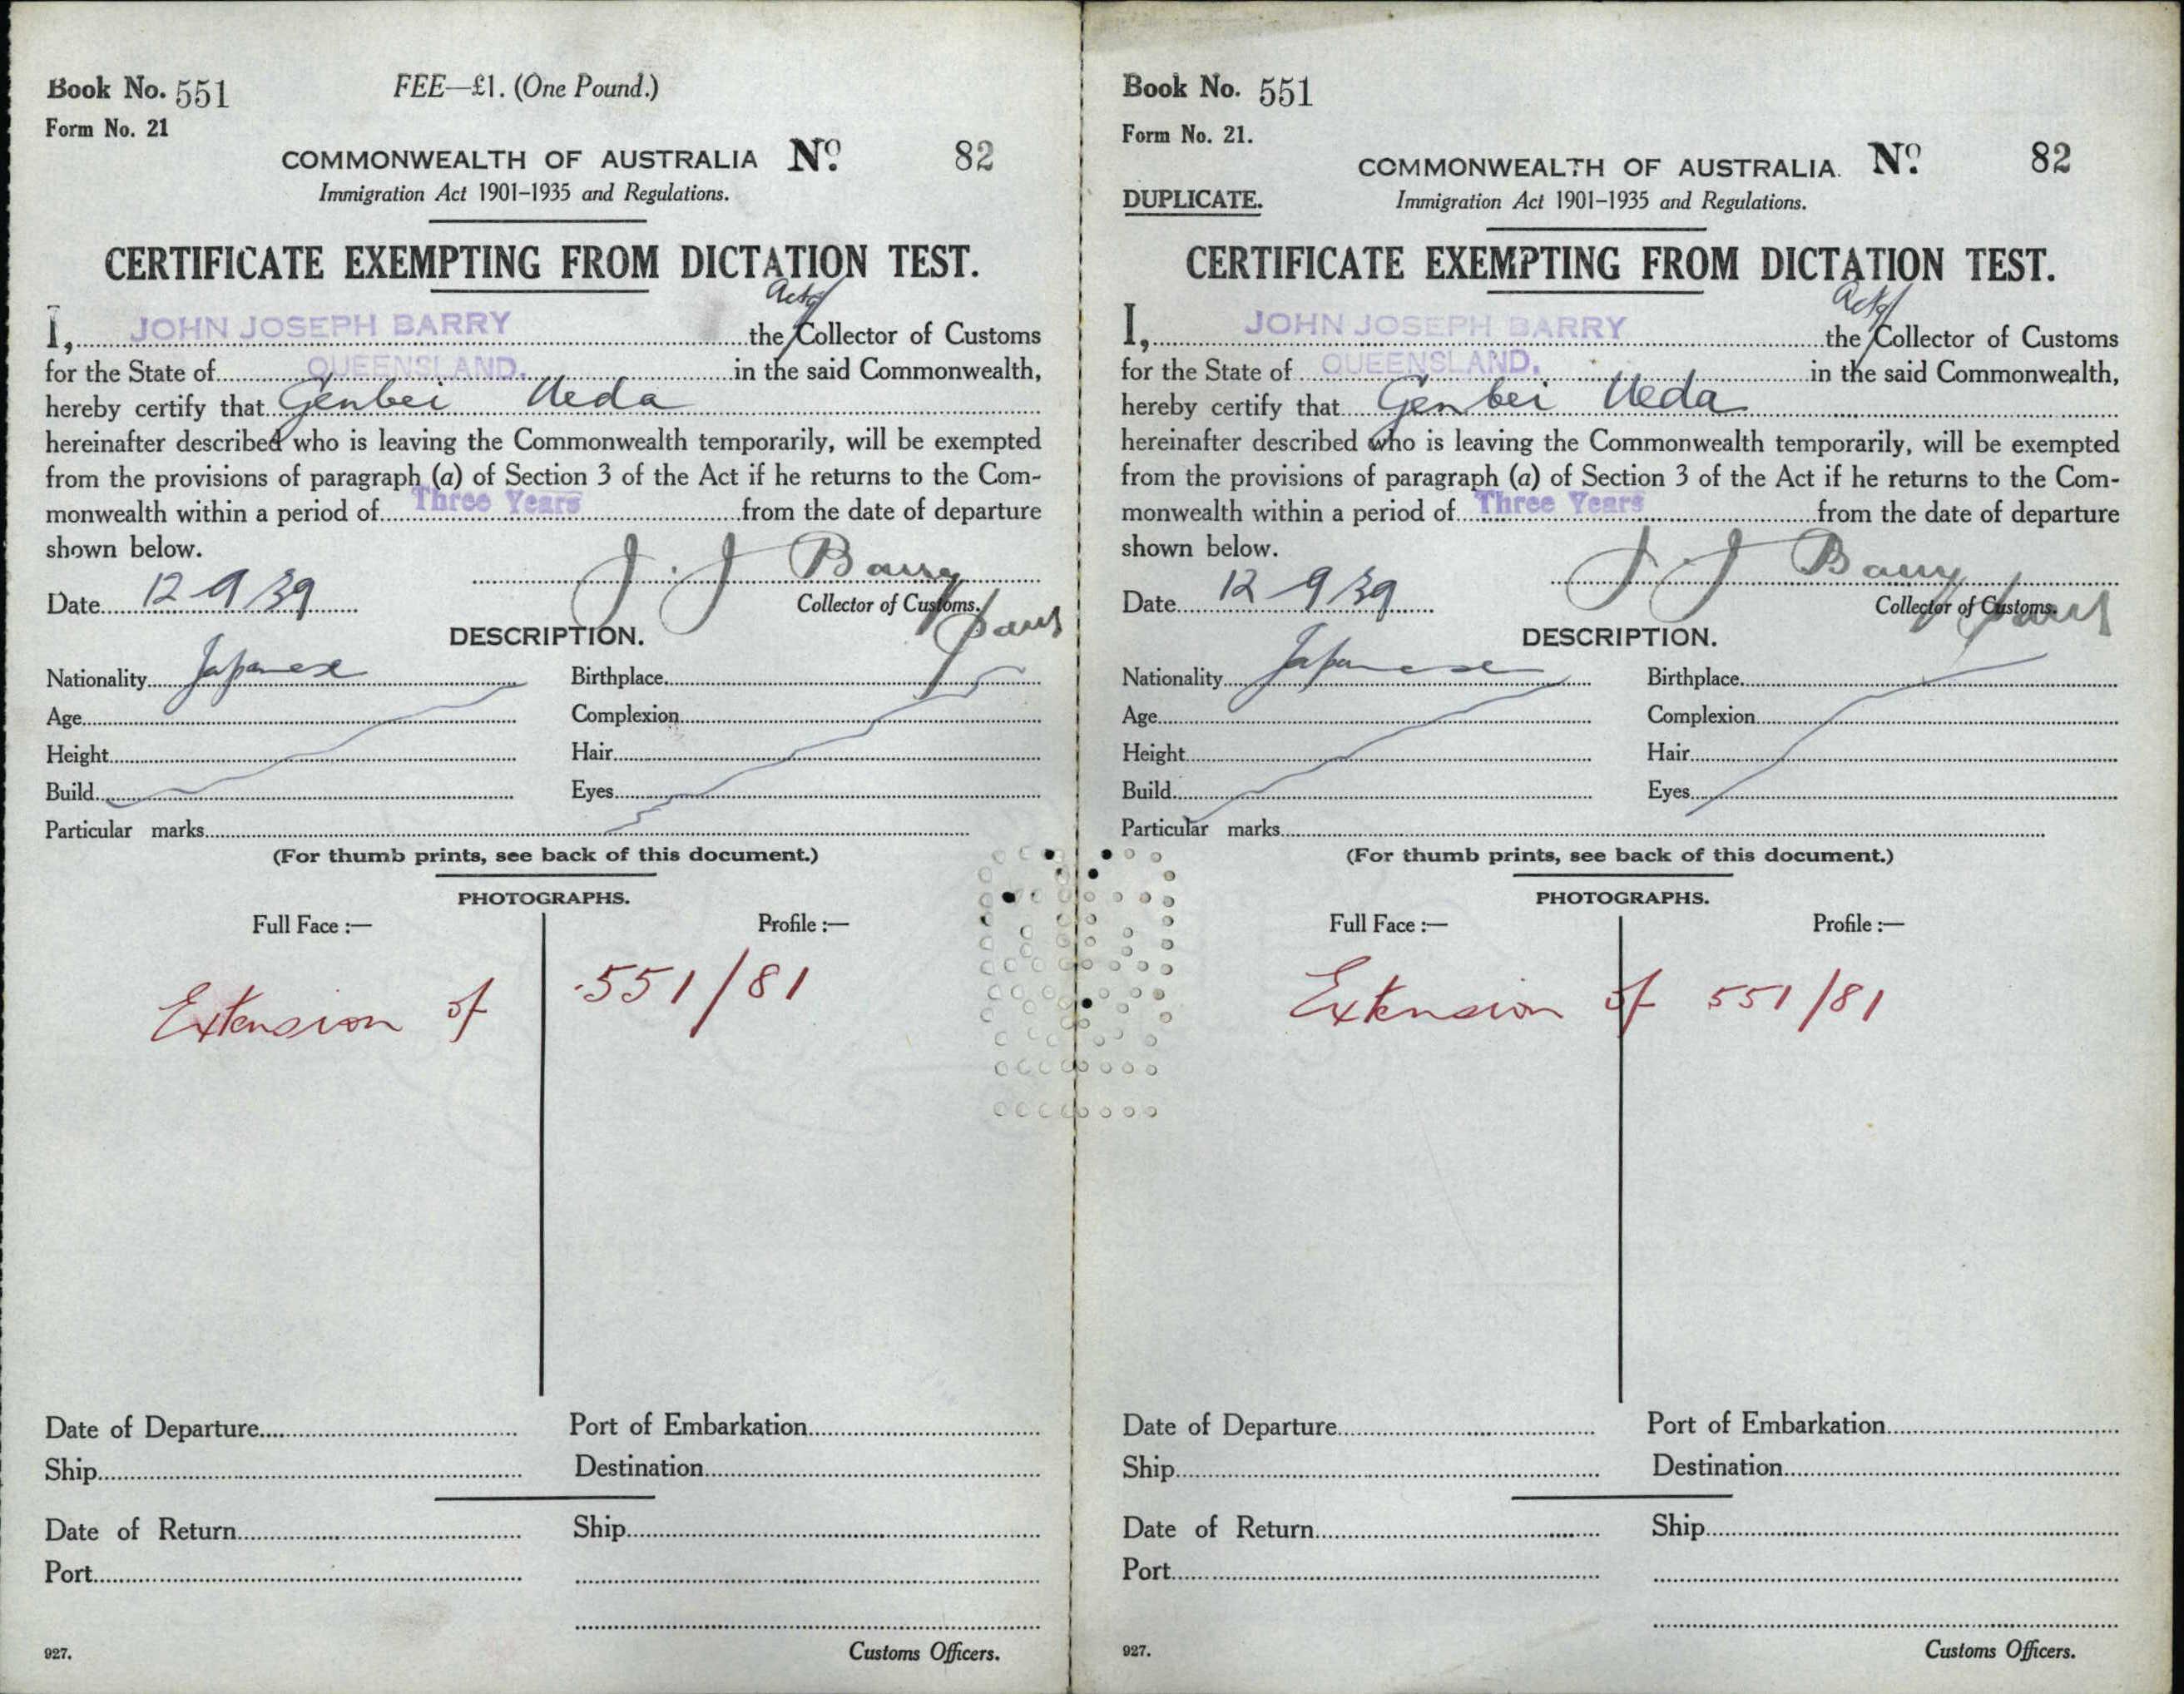 Book No. 551
FEE—£1. (One Pound.)
Form No. 21
COMMONWEALTH OF AUSTRALIA No. 82
Immigration Act 1901–1935 and Regulations.
CERTIFICATE EXEMPTING FROM DICTATION TEST.
Actg
I, JOHN JOSEPH BARRY the Collector of Customs
for the State of QUEENSLAND. in the said Commonwealth,
hereby certify that Genbei Ueda
hereinafter described who is leaving the Commonwealth temporarily, will be exempted
from the provisions of paragraph (a) of Section 3 of the Act if he returns to the Com-
monwealth within a period of Three Years from the date of departure
shown below.
J. J Barry
Date 12 9 39
Collector of Customs.
DESCRIPTION.
Nationality Japanese Birthplace
Age Complexion
Height Hair
Build Eyes
Particular marks
(For thumb prints, see back of this document.)
PHOTOGRAPHS.
Full Face :— Profile :—
Extension of 551/81
Date of Departure Port of Embarkation
Ship Destination
Date of Return Ship
Port
927. Customs Officers.
Book No. 551
Form No. 21.
COMMONWEALTH OF AUSTRALIA. No. 82
DUPLICATE. Immigration Act 1901–1935 and Regulations.
CERTIFICATE EXEMPTING FROM DICTATION TEST.
Actg
I, JOHN JOSEPH BARRY the Collector of Customs
for the State of QUEENSLAND. in the said Commonwealth,
hereby certify that Genbei Ueda
hereinafter described who is leaving the Commonwealth temporarily, will be exempted
from the provisions of paragraph (a) of Section 3 of the Act if he returns to the Com-
monwealth within a period of Three Years from the date of departure
shown below.
J J Barry
Date 12 9 39
Collector of Customs.
DESCRIPTION.
Nationality Japanese Birthplace
Age Complexion
Height Hair
Build Eyes
Particular marks
(For thumb prints, see back of this document.)
PHOTOGRAPHS.
Full Face :— Profile :—
Extension of 551/81
Date of Departure Port of Embarkation
Ship Destination
Date of Return Ship
Port
927. Customs Officers.